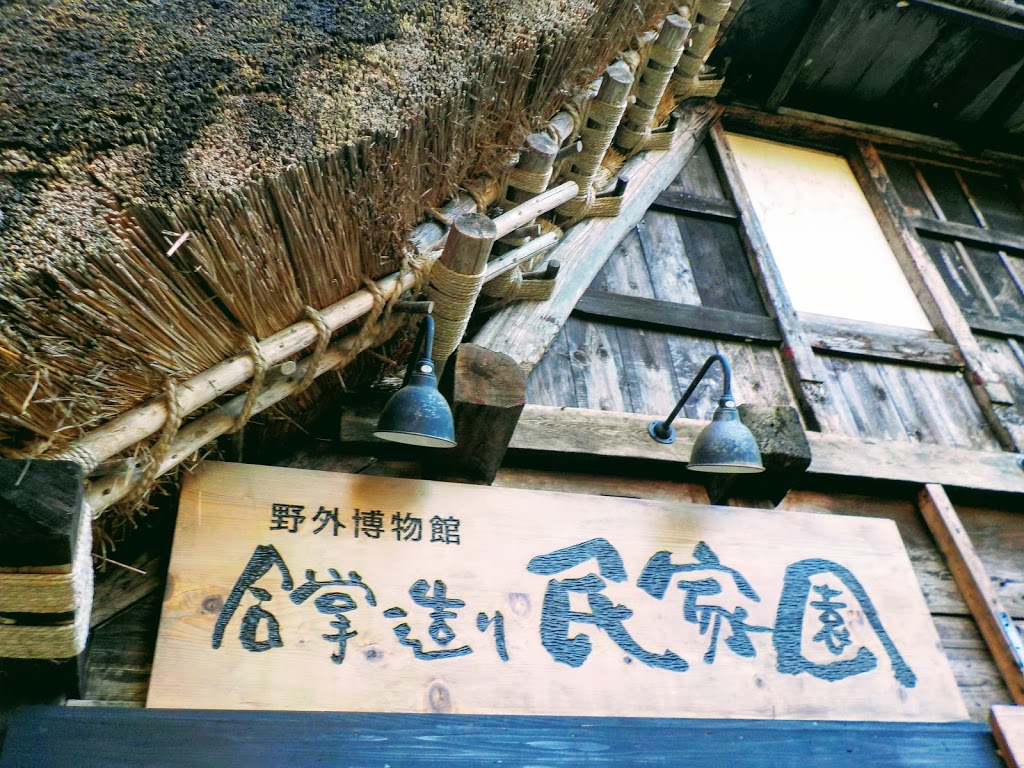 野外博物館
合掌造り民家園